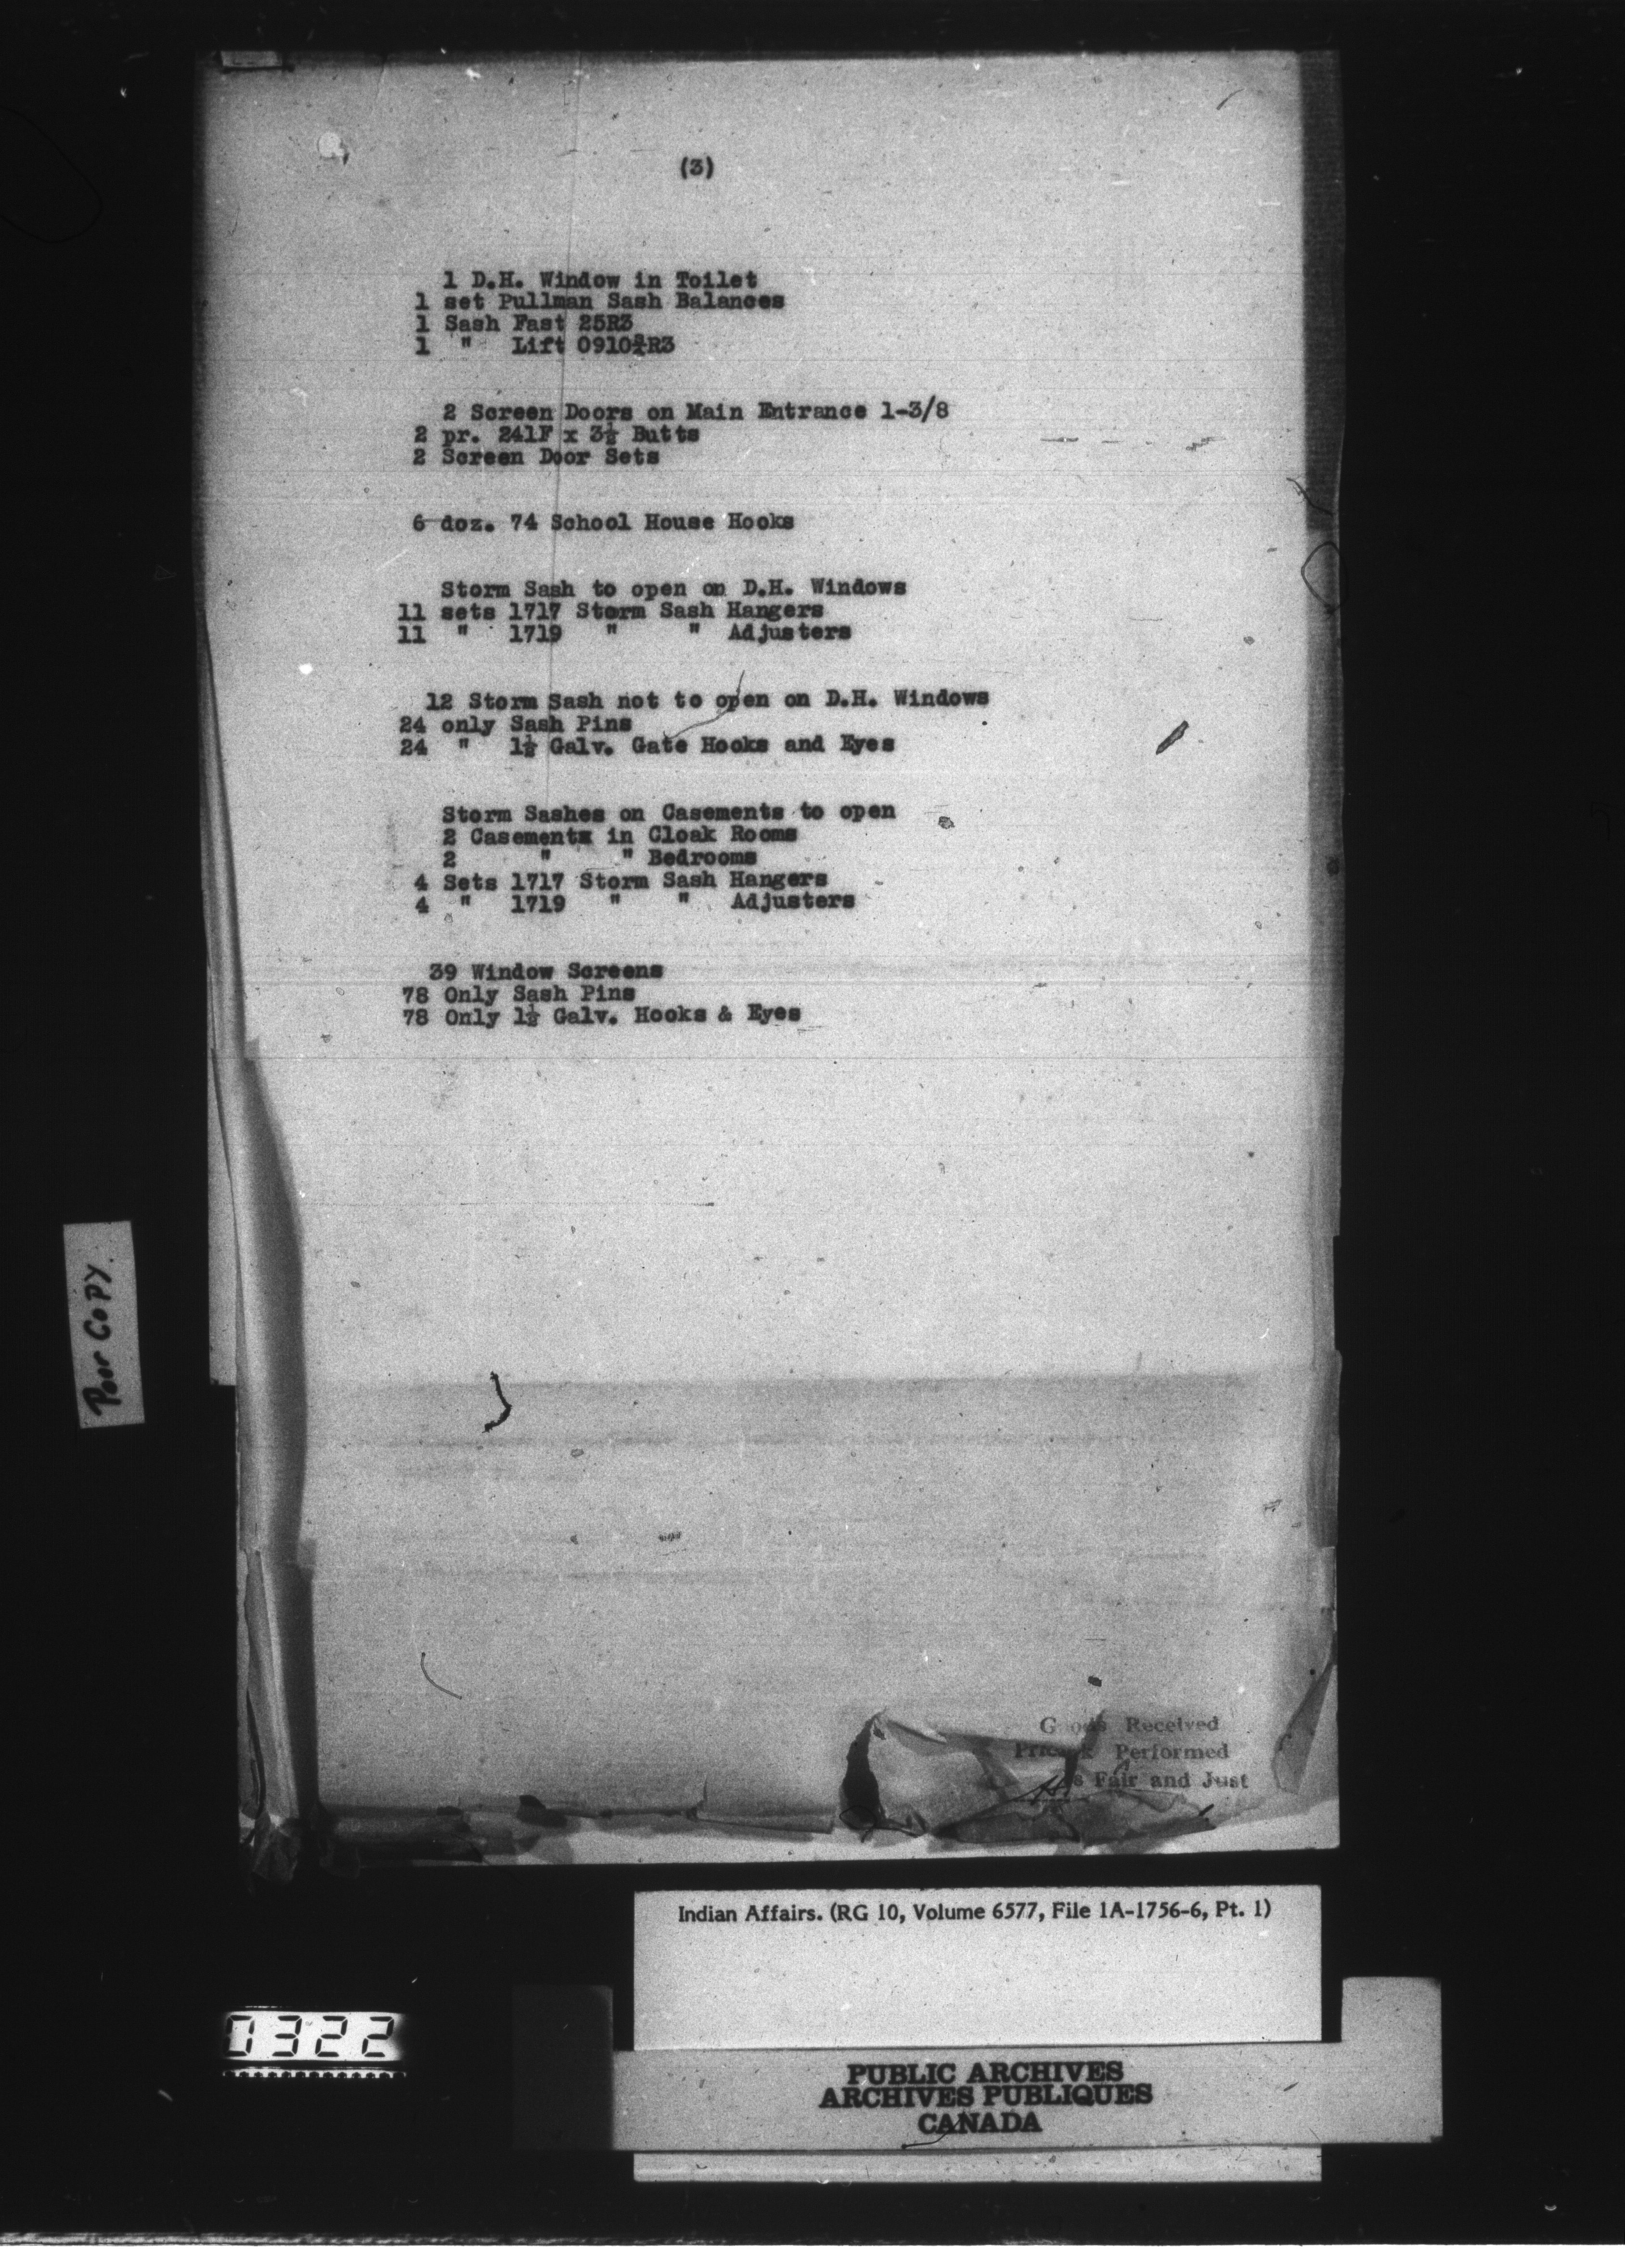 (3)
1 D.H. Window in Toilet
1 set Pullman Sash Balances
1 Sash Fast 25R3
1 " Lift 0910¾R3
2 Screen Doors on Main Entrance 1-3/8
2 pr. 241F x 3½ Butts
2 Screen Door Sets
6 doz. 74 School House Hooks
Storm Sash to open on D.H. Windows
11 sets 1717 Storm Sash Hangers
11 " 1719 " " Adjusters
12 Storm Sash not to open on D.H. Windows
24 only Sash Pins
24 " 1½ Galv. Gate Hooks and Eyes
Storm Sashes on Casements to open
2 Casements in Cloak Rooms
2 " " Bedrooms
4 Sets 1717 Storm Sash Hangers
4 " 1719 " " Adjusters
39 Window Screens
78 Only Sash Pins
78 Only 1½ Galv. Hooks & Eyes
Poor Copy.
Goods Received
Performed
Fair and Just
Indian Affairs. (RG 10, Volume 6577, File 1A-1756-6, Pt. 1)
0322
PUBLIC ARCHIVES
ARCHIVES PUBLIQUES
CANADA